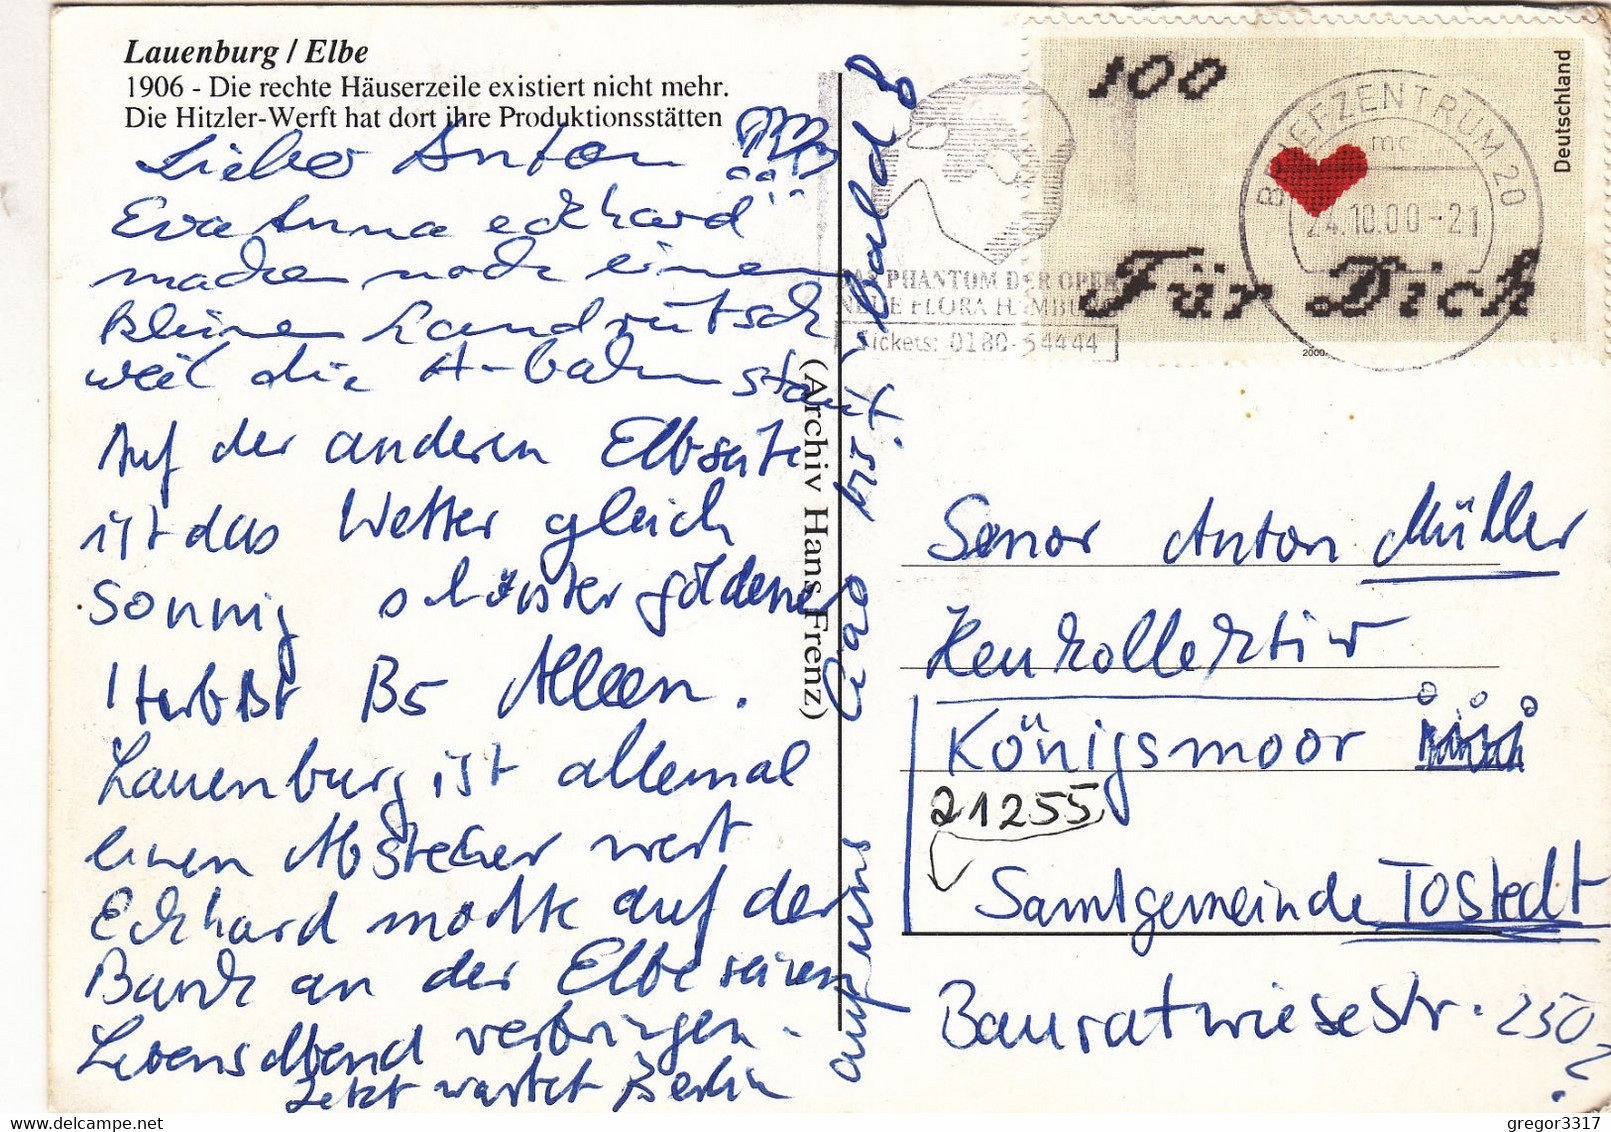 Lauenburg / Elbe
1906 - Die rechte Häuserzeile existiert nicht mehr.
Die Hitzler-Werft hat dort ihre Produktionsstätten
Lieber Anton
Eva Anna eckhard
machen noch einen
kleinen Landrutsch
weil die A-bahn staut.
Auf der anderen Elbseite
ist das Wetter gleich
sonnig schönster goldener
Herbst B5 Alleen.
Lauenburg ist allemal
einen Abstecher wert
Eckhard möchte auf der
Bank an der Elbe seinen
Lebensabend verbringen.
Jetzt wartet Berlin
auf uns Ciao bis bald
(Archiv Hans Frenz)
100
Für Dich
Deutschland
2000
BRIEFZENTRUM 20
24.10.00-21
DAS PHANTOM DER OPER
NEUE FLORA HAMBURG
Tickets: 0180-5 44 44
Senor Anton Müller
Heukollektiv
Königsmoor
21255
Samtgemeinde TOStedt
Bauratwiesestr. 250
?
gregor3317